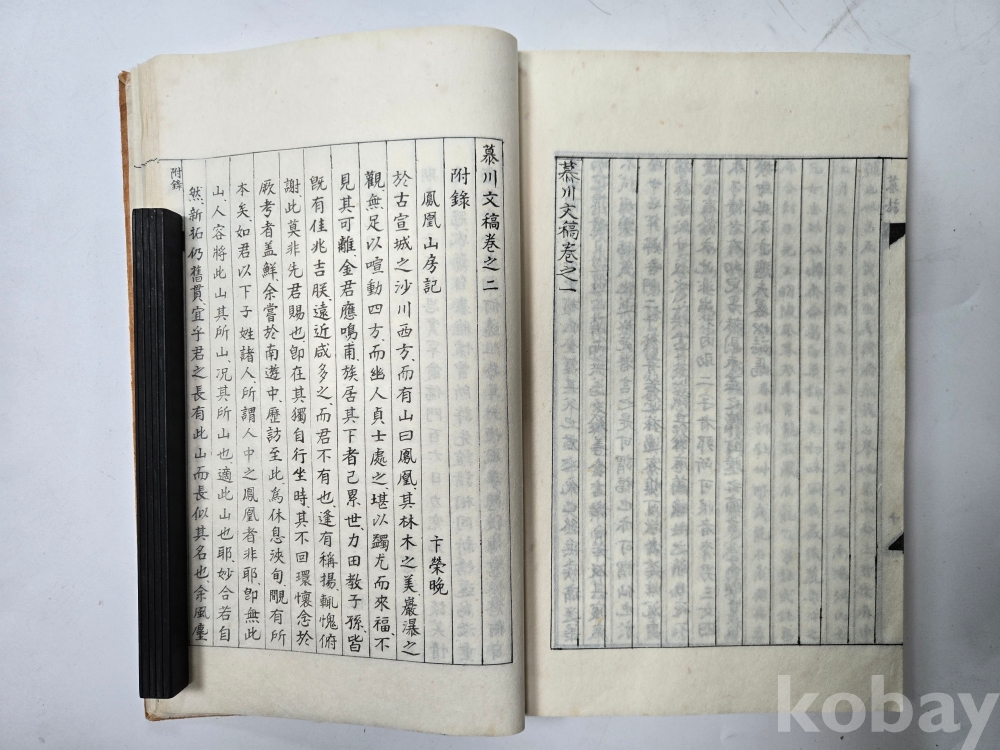 慕川文稿卷之一
慕川文稿卷之二
附錄
鳳凰山房記
卞榮晩
於古宣城之沙川西方、而有山曰鳳凰、其林木之美巖瀑之
觀、無足以喧動四方、而幽人貞士處之、堪以蠲尤而來福、不
見其可離、金君應鳴甫、族居其下者已累世、力田教子孫、皆
旣有佳兆吉朕、遠近咸多之、而君不有也、逢有稱揚、輒愧俯
謝、此莫非先君賜也、卽在其獨自行坐時、其不回環懷念於
厥考者盖鮮、余嘗於南遊中、歷訪至此、爲休息浹旬、覵有所
本矣、如君以下子姓諸人、所謂人中之鳳凰者非耶、卽無此
山、人容將此山其所山、况其所山也、適此山也耶、妙合若自
然、新拓仍舊貫、宜乎君之長有此山而長似其名也、余風塵
附錄
kobay